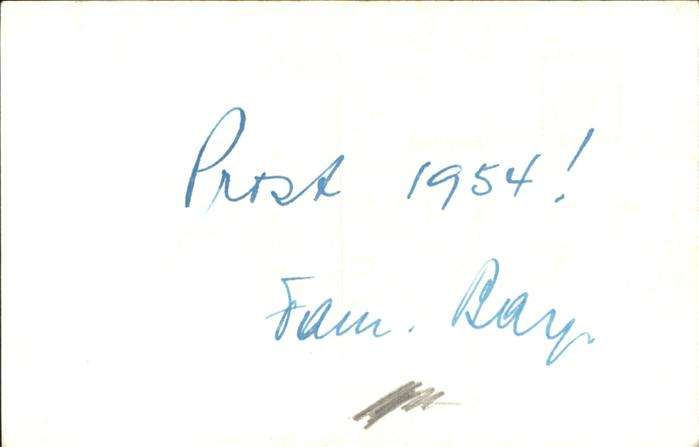 Prost 1954!
Fam. Bay.